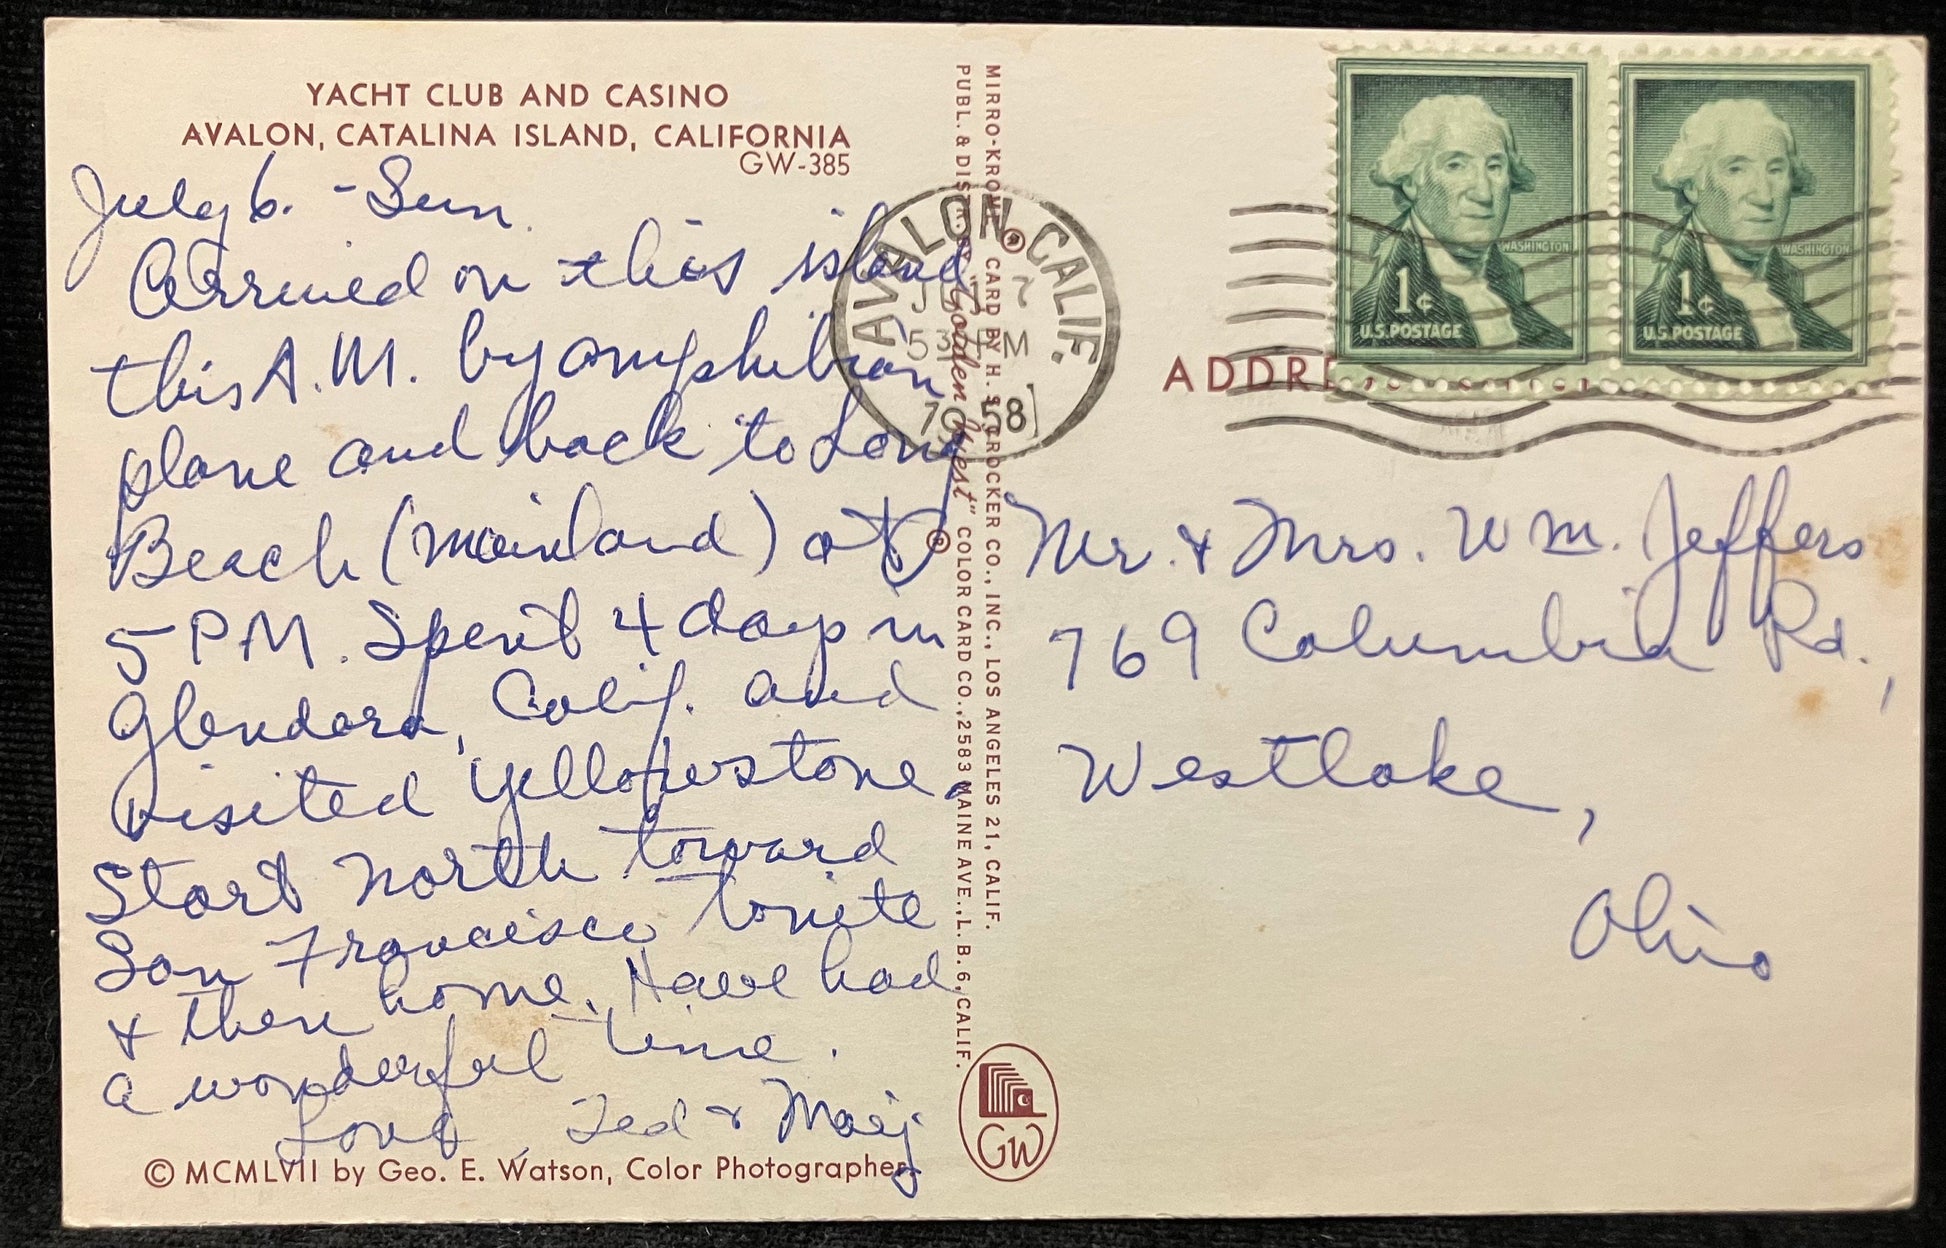 YACHT CLUB AND CASINO
AVALON, CATALINA ISLAND, CALIFORNIA
GW-385
July 6. - Sun.
Arrived on this island
this A.M. by amphibian
plane and back to Long
Beach (mainland) at
5 P.M. Spent 4 days in
Glendora, Calif. and
visited Yellowstone.
Start north toward
San Francisco tonite
& then home. Have had
a wonderful time.
Love, Ted & Marj
© MCMLVII by Geo. E. Watson, Color Photographer.
PUBL. & DIST. BY "Golden West" ® COLOR CARD CO., 2583 MAINE AVE., L. B. 6, CALIF.
MIRRO-KROME ® CARD BY H. S. CROCKER CO., INC., LOS ANGELES 21, CALIF.
GW
AVALON, CALIF.
JUL 7
5 PM
1958
WASHINGTON
1¢
U.S. POSTAGE
WASHINGTON
1¢
U.S. POSTAGE
Mr. & Mrs. Wm. Jeffers
769 Columbia Rd.,
Westlake,
Ohio